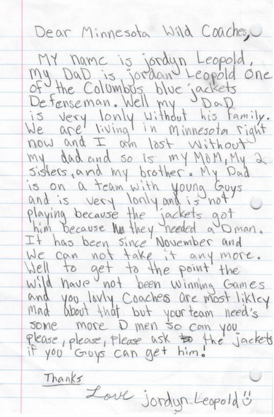 Dear Minnesota Wild Coaches,
MY name is jordyn Leopold,
my DaD is jordan Leopold One
of the Columbus blue jackets
Defenseman. Well my DaD
is very lonly without his family.
We are living in Minnesota right
now and I am lost without
my dad and so is my MoM, My 2
sisters, and my brother. My Dad
is on a team with young Guys
and is very lonly and is not
playing because the jackets got
him because they needed a Dman.
It has been since November and
We can not take it any more.
Well to get to the point the
wild have not been winning Games
and you luvly Coaches are most likley
mad about that but your team need's
some more D men so can you
please, please, Please ask the jackets
if you Guys can get him!
Thanks
Love jordyn Leopold